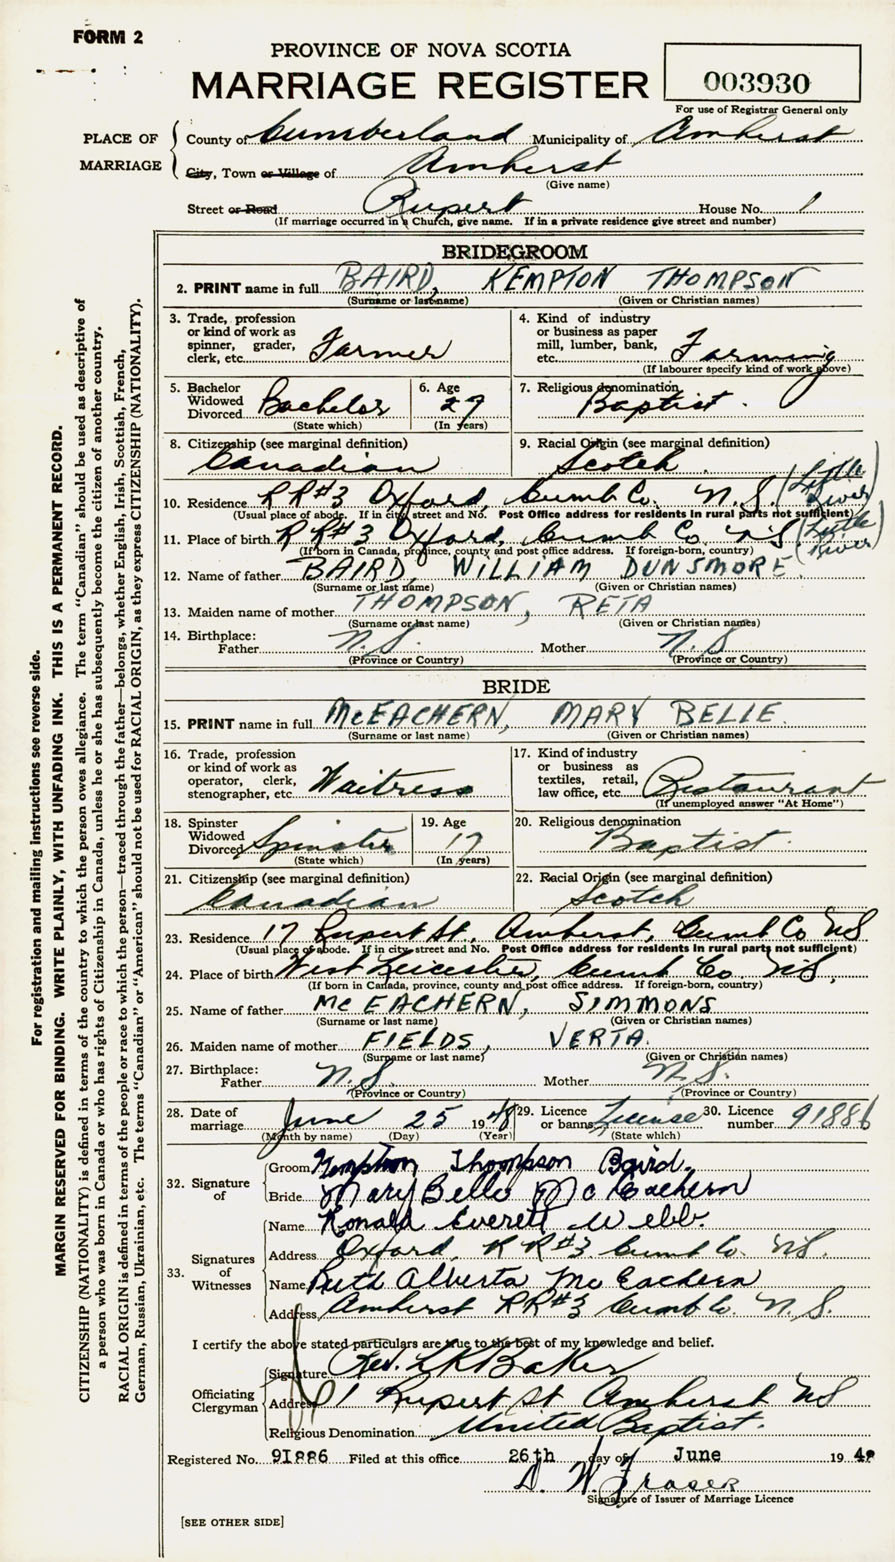 FORM 2
PROVINCE OF NOVA SCOTIA
MARRIAGE REGISTER
003930
For use of Registrar General only
PLACE OF MARRIAGE
County of Cumberland Municipality of Amherst
City, Town or Village of Amherst
(Give name)
Street or Road Rupert House No. 1
(If marriage occurred in a Church, give name. If in a private residence give street and number)
BRIDEGROOM
2. PRINT name in full BAIRD, KEMPTON THOMPSON
(Surname or last name) (Given or Christian names)
3. Trade, profession or kind of work as spinner, grader, clerk, etc. Farmer
4. Kind of industry or business as paper mill, lumber, bank, etc. Farming
(If labourer specify kind of work above)
5. Bachelor Widowed Divorced Bachelor
(State which)
6. Age 27
(In years)
7. Religious denomination Baptist.
8. Citizenship (see marginal definition) Canadian
9. Racial Origin (see marginal definition) Scotch.
10. Residence RR#3 Oxford, Cumb Co. N.S. (Little River)
(Usual place of abode. If in city street and No. Post Office address for residents in rural parts not sufficient)
11. Place of birth RR#3 Oxford, Cumb Co NS (Little River)
(If born in Canada, province, county and post office address. If foreign-born, country)
12. Name of father BAIRD, WILLIAM DUNSMORE.
(Surname or last name) (Given or Christian names)
13. Maiden name of mother THOMPSON, RETA
(Surname or last name) (Given or Christian names)
14. Birthplace: Father N.S. Mother N.S
(Province or Country) (Province or Country)
BRIDE
15. PRINT name in full McEACHERN, MARY BELLE.
(Surname or last name) (Given or Christian names)
16. Trade, profession or kind of work as operator, clerk, stenographer, etc. Waitress
17. Kind of industry or business as textiles, retail, law office, etc. Restaurant
(If unemployed answer "At Home")
18. Spinster Widowed Divorced Spinster
(State which)
19. Age 17
(In years)
20. Religious denomination Baptist.
21. Citizenship (see marginal definition) Canadian
22. Racial Origin (see marginal definition) Scotch
23. Residence 17 Rupert St, Amherst, Cumb Co NS
(Usual place of abode. If in city street and No. Post Office address for residents in rural parts not sufficient)
24. Place of birth West Leicester, Cumb Co NS,
(If born in Canada, province, county and post office address. If foreign-born, country)
25. Name of father McEACHERN, SIMMONS
(Surname or last name) (Given or Christian names)
26. Maiden name of mother FIELDS, VERTA.
(Surname or last name) (Given or Christian names)
27. Birthplace: Father N.S. Mother N.S.
(Province or Country) (Province or Country)
28. Date of marriage June 25 1948
(Month by name) (Day) (Year)
29. Licence or banns License
(State which)
30. Licence number 91886
32. Signature of
Groom Kempton Thompson Baird.
Bride Mary Belle McEachern
33. Signatures of Witnesses
Name Ronald Everett Webb.
Address Oxford, RR#3 Cumb Co. NS.
Name Ruth Alberta McEachern
Address Amherst RR#3 Cumb Co. N.S.
I certify the above stated particulars are true to the best of my knowledge and belief.
Officiating Clergyman
Signature Rev. L K Baker
Address 1 Rupert St Amherst NS
Religious Denomination United Baptist.
Registered No. 91886 Filed at this office 26th day of June 1948
D. W. Fraser
Signature of Issuer of Marriage Licence
[SEE OTHER SIDE]
For registration and mailing instructions see reverse side.
MARGIN RESERVED FOR BINDING. WRITE PLAINLY, WITH UNFADING INK. THIS IS A PERMANENT RECORD.
CITIZENSHIP (NATIONALITY) is defined in terms of the country to which the person owes allegiance. The term "Canadian" should be used as descriptive of
a person who was born in Canada or who has rights of Citizenship in Canada, unless he or she has subsequently become the citizen of another country.
RACIAL ORIGIN is defined in terms of the people or race to which the person—traced through the father—belongs, whether English, Irish, Scottish, French,
German, Russian, Ukrainian, etc. The terms "Canadian" or "American" should not be used for RACIAL ORIGIN, as they express CITIZENSHIP (NATIONALITY).